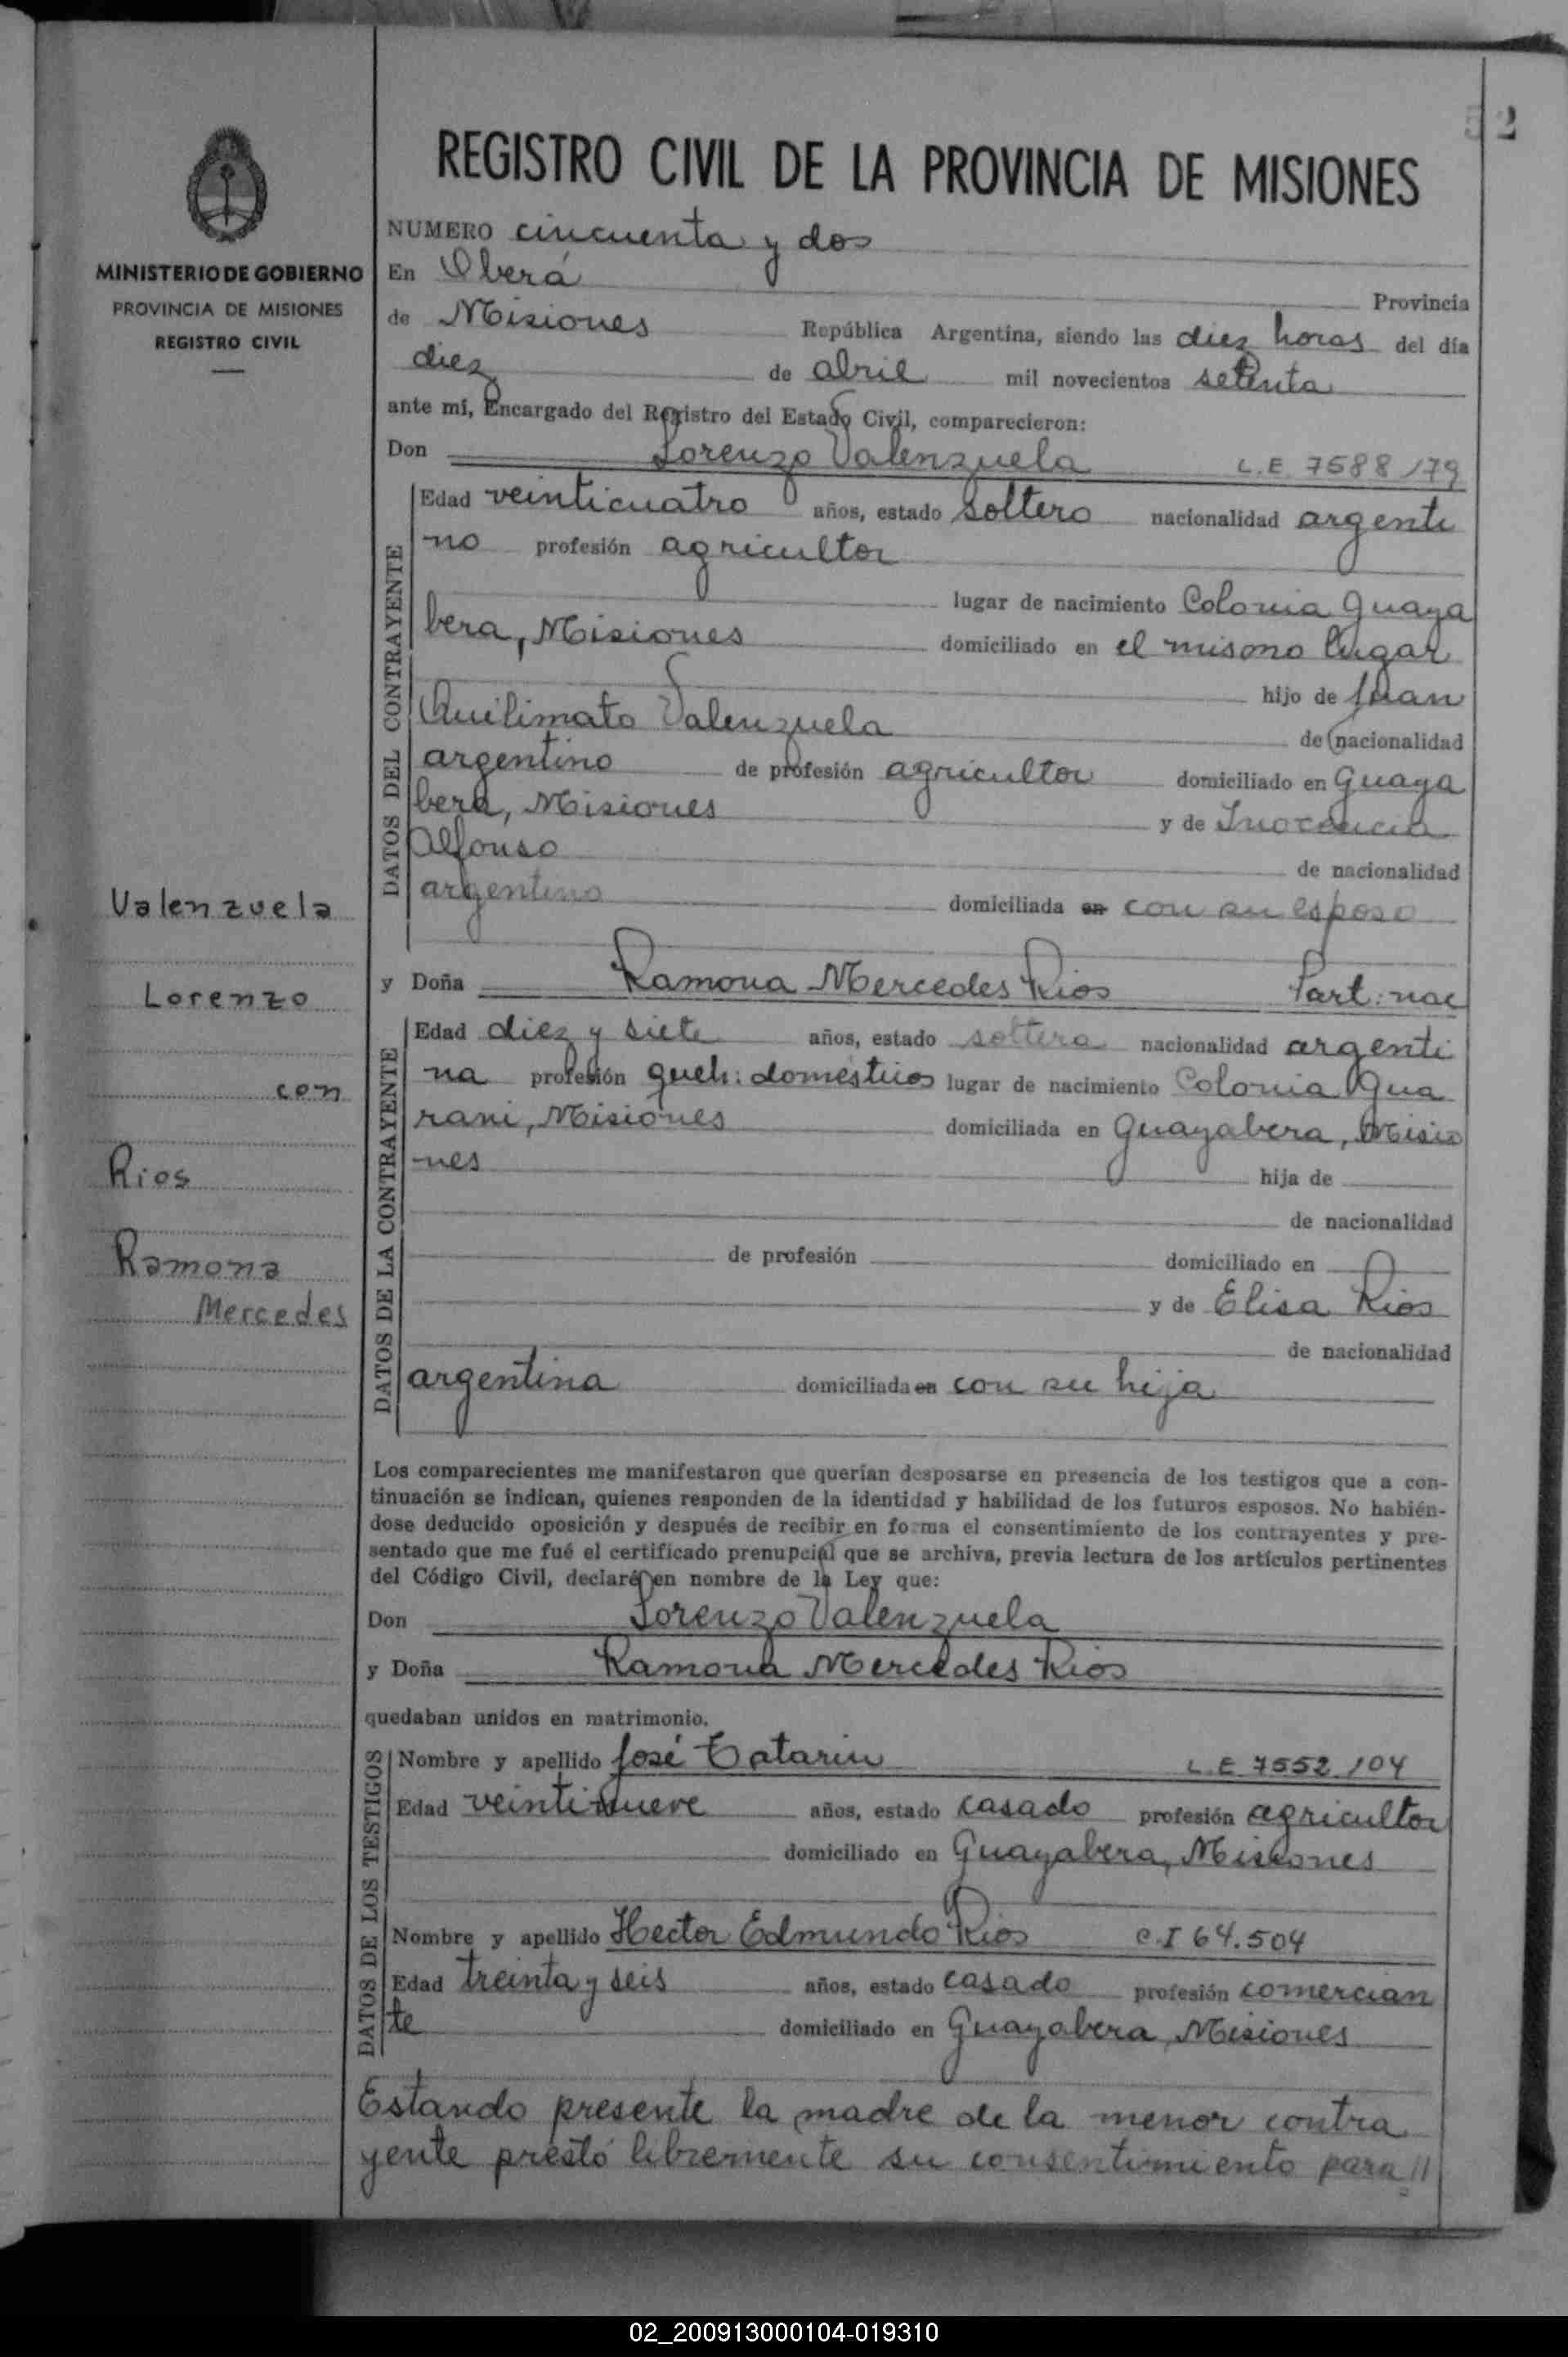 52
REGISTRO CIVIL DE LA PROVINCIA DE MISIONES
MINISTERIO DE GOBIERNO
PROVINCIA DE MISIONES
REGISTRO CIVIL
Valenzuela
Lorenzo
con
Rios
Ramona
Mercedes
NUMERO cincuenta y dos
En Oberá Provincia
de Misiones República Argentina, siendo las diez horas del día
diez de abril mil novecientos setenta
ante mí, Encargado del Registro del Estado Civil, comparecieron:
Don Lorenzo Valenzuela L.E. 7588179
DATOS DEL CONTRAYENTE
Edad veinticuatro años, estado soltero nacionalidad argenti
no profesión agricultor
lugar de nacimiento Colonia Guaya
bera, Misiones domiciliado en el mismo lugar
hijo de Juan
Quilimato Valenzuela de nacionalidad
argentino de profesión agricultor domiciliado en Guaya
bera, Misiones y de Inocencia
Alfonso de nacionalidad
argentina domiciliada en con su esposo
y Doña Ramona Mercedes Rios Part: nac
DATOS DE LA CONTRAYENTE
Edad diez y siete años, estado soltera nacionalidad argenti
na profesión queh: domésticos lugar de nacimiento Colonia Gua
rani, Misiones domiciliada en Guayabera, Misio
nes hija de
de nacionalidad
de profesión domiciliado en
y de Elisa Rios
de nacionalidad
argentina domiciliada en con su hija
Los comparecientes me manifestaron que querían desposarse en presencia de los testigos que a con-
tinuación se indican, quienes responden de la identidad y habilidad de los futuros esposos. No habién-
dose deducido oposición y después de recibir en forma el consentimiento de los contrayentes y pre-
sentado que me fué el certificado prenupcial que se archiva, previa lectura de los artículos pertinentes
del Código Civil, declaré en nombre de la Ley que:
Don Lorenzo Valenzuela
y Doña Ramona Mercedes Rios
quedaban unidos en matrimonio.
DATOS DE LOS TESTIGOS
Nombre y apellido José Catarin L.E. 7552104
Edad veintinueve años, estado casado profesión agricultor
domiciliado en Guayabera, Misiones
Nombre y apellido Hector Edmundo Rios C.I 64.504
Edad treinta y seis años, estado casado profesión comercian
te domiciliado en Guayabera, Misiones
Estando presente la madre de la menor contra
yente prestó libremente su consentimiento para //
02_200913000104-019310